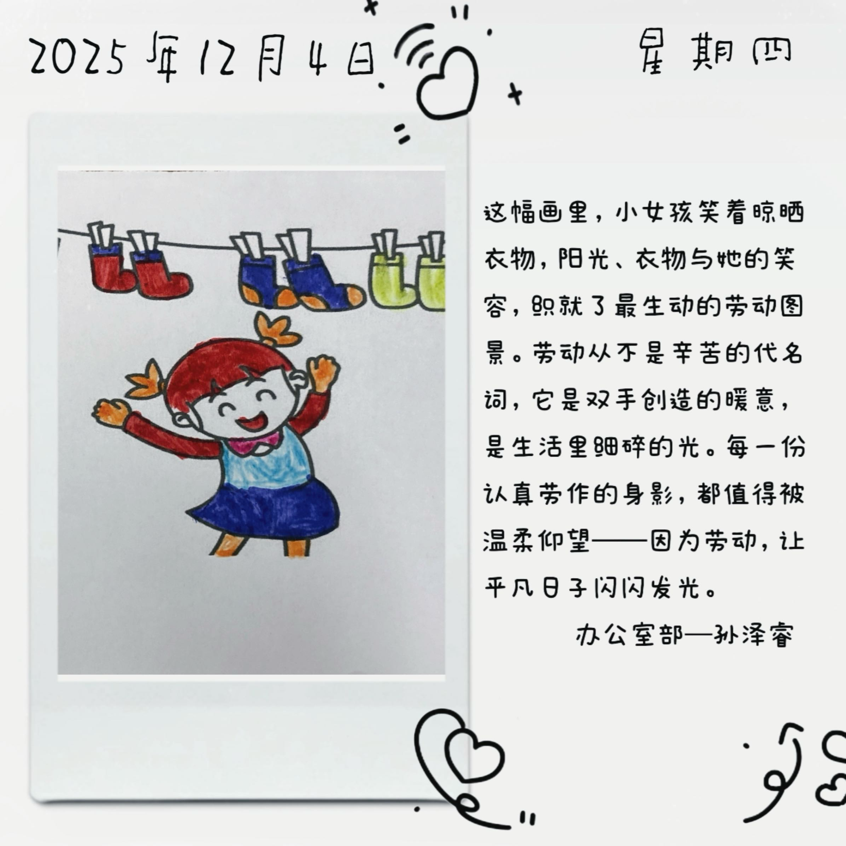 2025年12月4日 星期四
这幅画里，小女孩笑着晾晒
衣物，阳光、衣物与她的笑
容，织就了最生动的劳动图
景。劳动从不是辛苦的代名
词，它是双手创造的暖意，
是生活里细碎的光。每一份
认真劳作的身影，都值得被
温柔仰望——因为劳动，让
平凡日子闪闪发光。
办公室部—孙泽睿